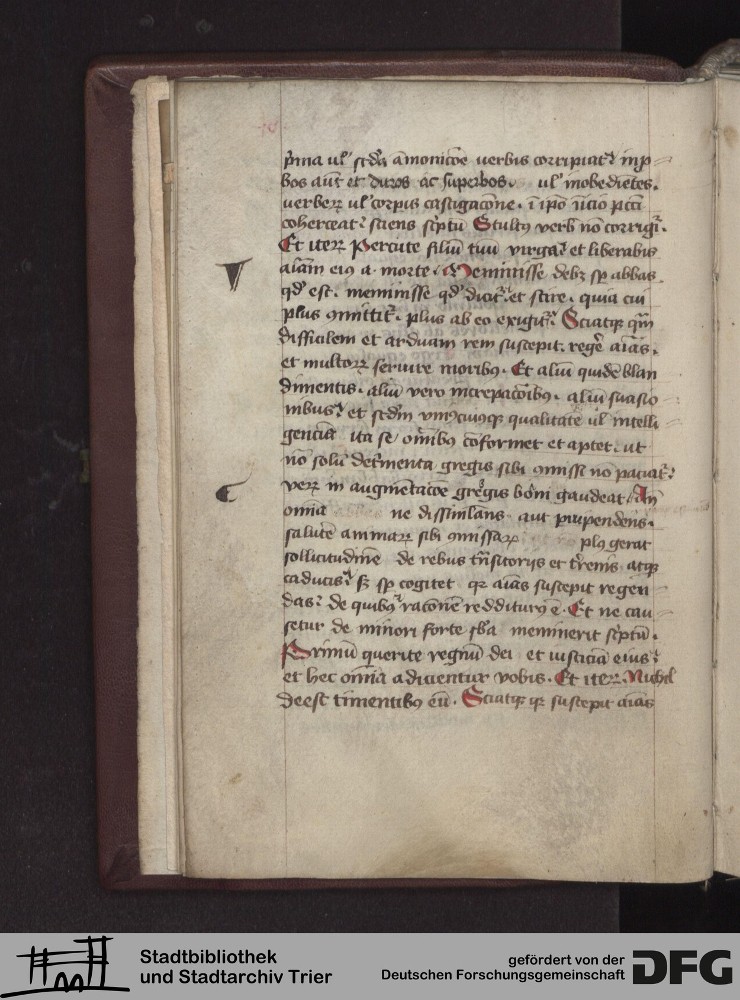 p̄ma ul' scd̄a āmonicōe uerbis corripiat᷑ inp
bos aūt et duros ac superbos. ul' inobediētes.
uerbeꝝ ul' corpis castigacōne. ī ipō īicio pcc̄i
coherceat᷑ sciens scͥptū Stultꝰ verb̄ nō corrigi᷑.
Et iteꝝ Percute filiū tuū virga᷑ et liberabis
aīam eiꝰ a morte. Meminisse debꝫ sp̄ abbas
qd' est. meminisse qd' dicit᷑. et scire. quia cui
plus ꝯmittit᷑. plus ab eo exigit᷑. Sciatqꝫ qm̄
difficilem et arduam rem suscepit. regēe aīas.
et multoꝝ seruire moribꝰ. Et aliū quidē blan
dimentis. aliū vero increpacōibꝰ. aliū suasio
nibus᷑ et scdm̄ vniꝰcuiusqꝫ qualitatē ul' intelli
genciā ita se om̄ibꝰ cōformet et aptet. ut
nō solū det᷑menta gregis sibi ꝯmissi nō paciat᷑
veꝝ in augmētacōe gregis boni gaudeat. An̄
omīa ne dissimlans aut puipendens.
salutē animaꝝ sibi ꝯmissaꝝ plꝰ gerat
sollicitudīne de rebus tn̄sitorijs et t᷑renis atqꝫ
caducis᷑ sꝫ sp̄ cogitet qꝛ aīas suscepit regen
das᷑ de quibꝰ racōnē redditurꝰ ē. Et ne cau
setur de minori forte sb̄a meminerit scͥptū.
Primū querite regnū dei et iusticiā eius᷑
et hec om̄ia adicientur vobis. Et iteꝝ. Nichil
deest timentibꝰ eū. Sciatqꝫ qꝛ suscepit aīas
Stadtbibliothek
und Stadtarchiv Trier
gefördert von der
Deutschen Forschungsgemeinschaft
DFG